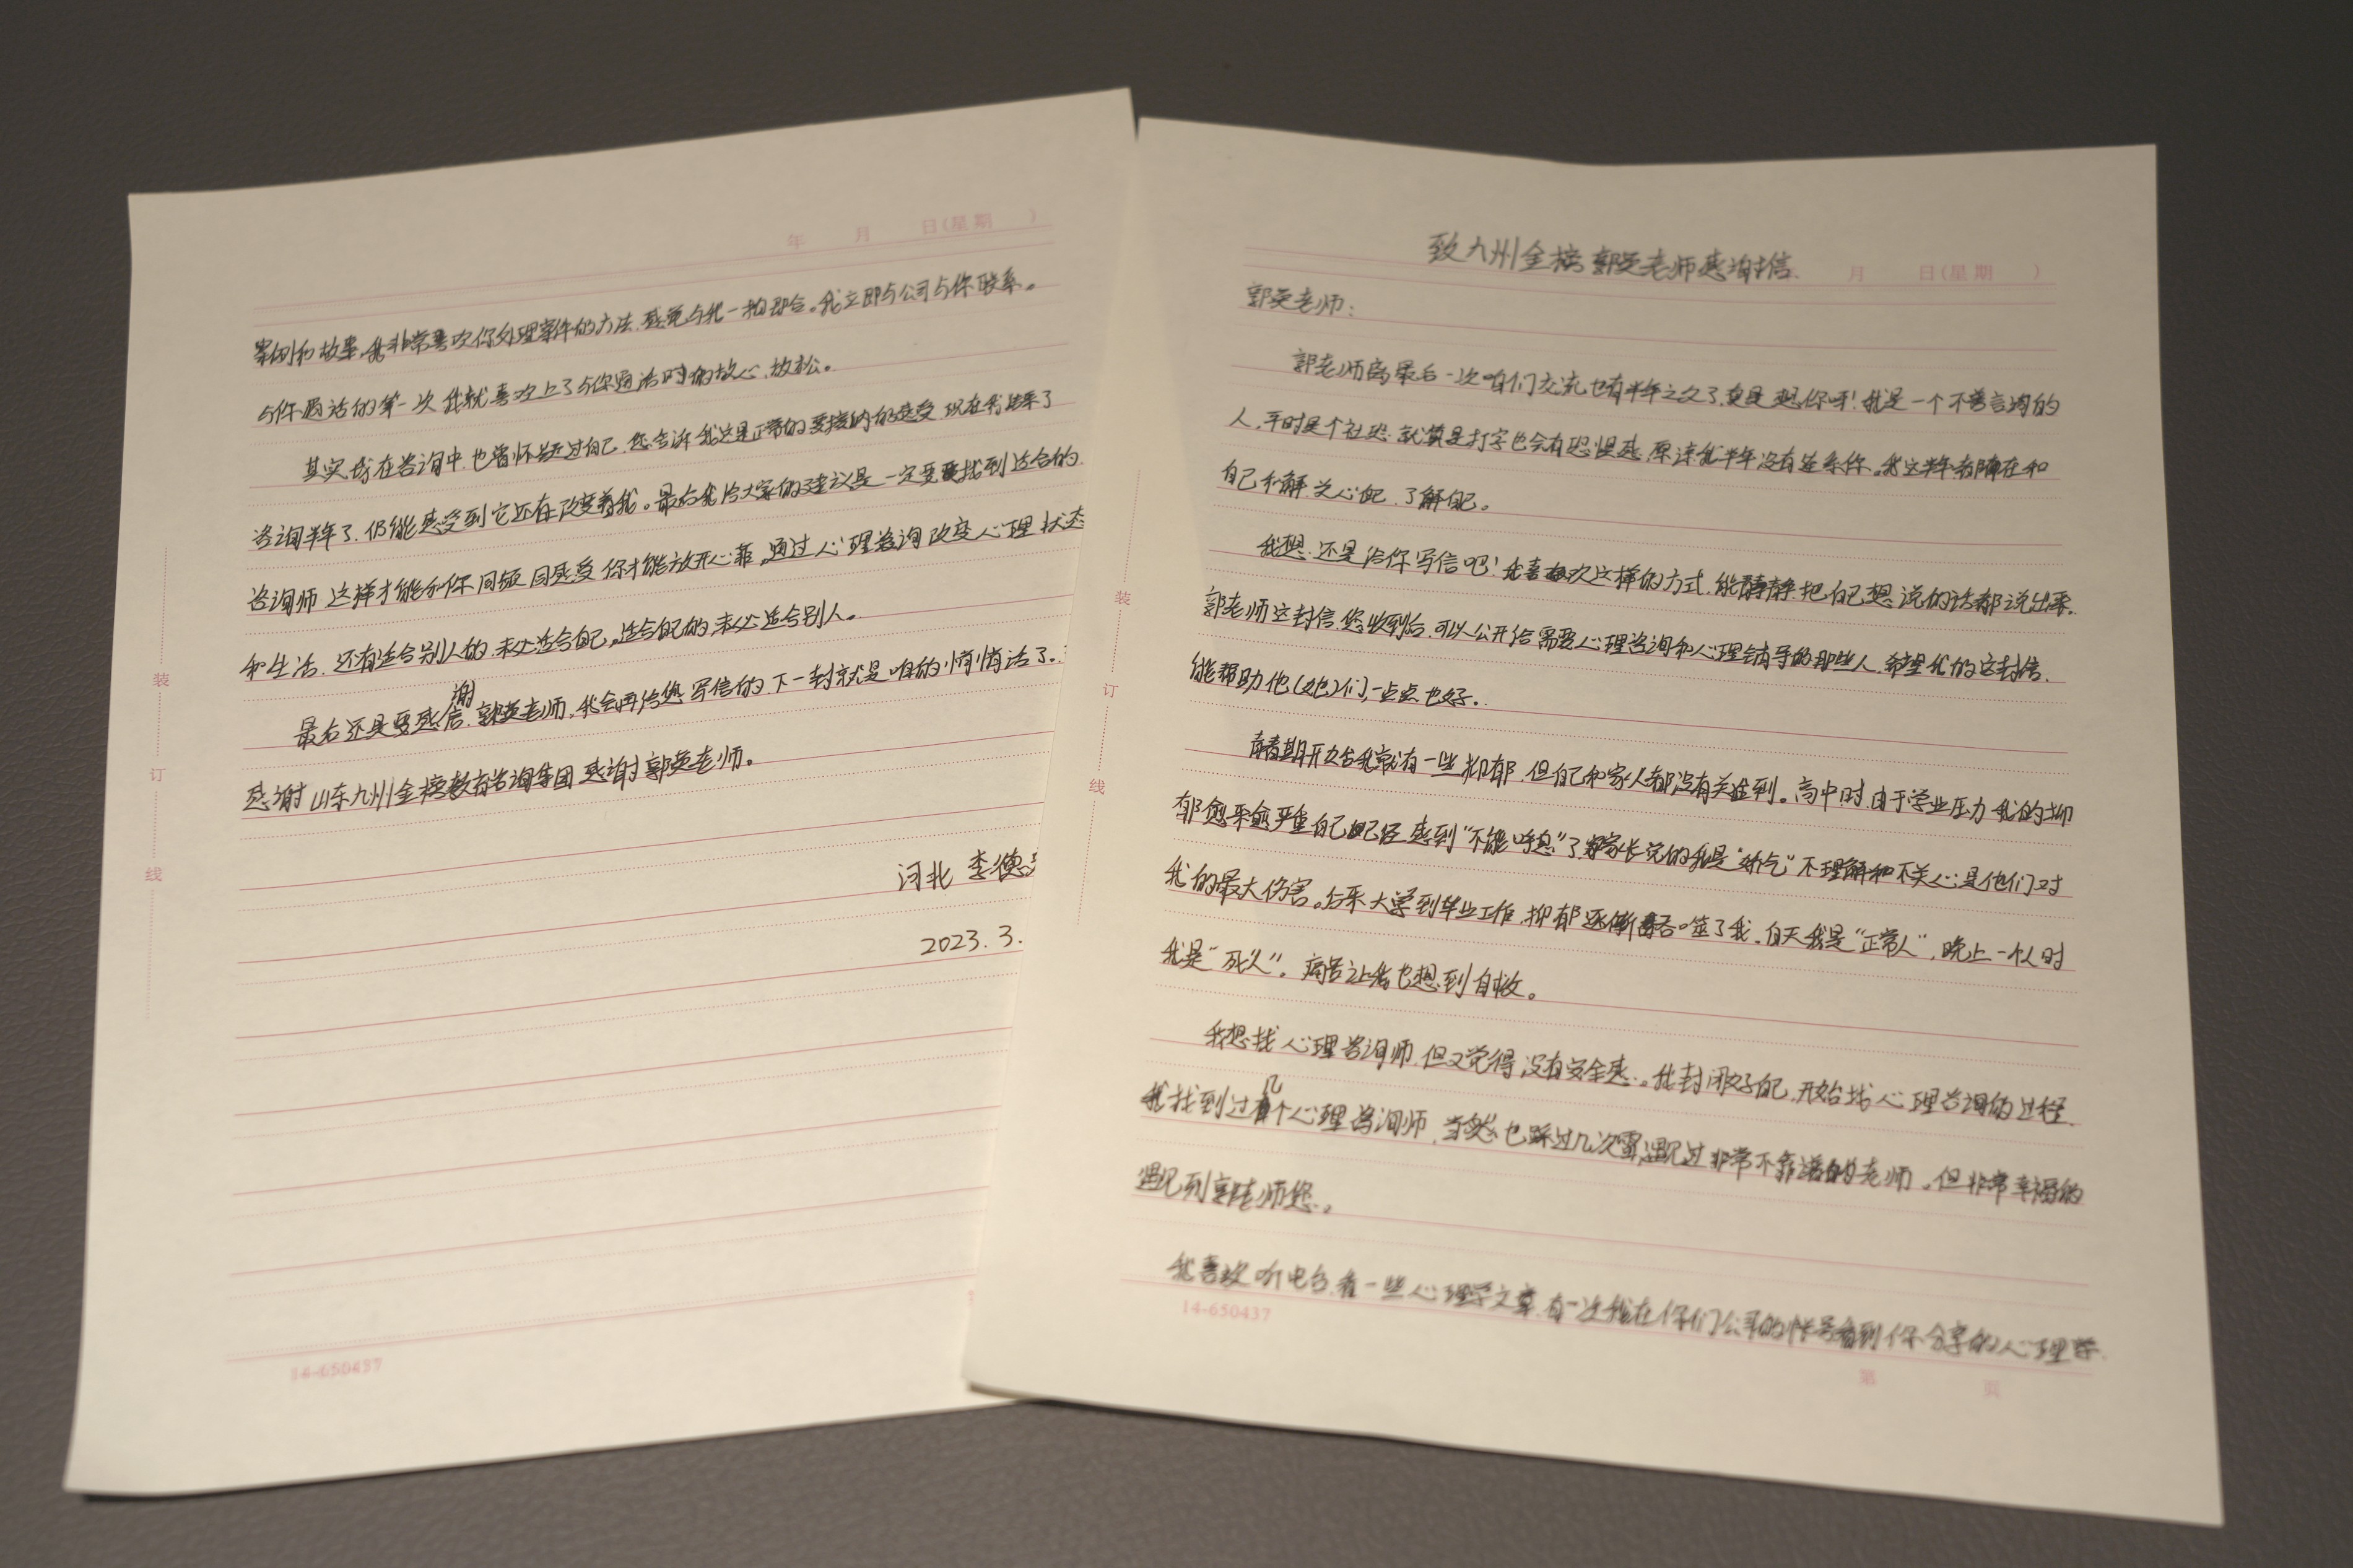 致九州金榜郭英老师感谢信
月 日(星期 )
郭英老师:
郭老师离最后一次咱们交流也有半年之久了,真是想你呀!我是一个不善言词的
人,平时是个社恐,就算是打字也会有恐惧感,原谅我半年没有连系你。我这半年都在和
自己和解,关心自己,了解自己。
我想,还是给你写信吧!我喜欢这样的方式,能静静把自己想说的话都说出来.
郭老师这封信,您收到后,可以公开给需要心理咨询和心理辅导的那些人,希望我的这封信,
能帮助他(她)们,一点点也好。
青春期开始我就有一些抑郁,但自己和家人都没有关注到。高中时,由于学业压力我的抑
郁愈来愈严重自己已经感到“不能呼息”了,家长说的我是“娇气”不理解和不关心是他们对
我的最大伤害。后来大学到毕业工作,抑郁逐渐吞噬了我,白天我是“正常人”,晚上一个人时
我是“死人”。痛苦让我也想到自救。
我想找心理咨询师,但又觉得没有安全感。我封闭好自己,开始找心理咨询的过程.
我找到过几个心理咨询师,当然也踩过几次雷,遇见过非常不靠谱的老师。但非常幸福的
遇见到郭老师您。
我喜欢听电台,看一些心理学文章,有一次我在你们公司的帐号看到你分享的心理学
14-650437
第 页
装
订
线
年 月 日(星期 )
案例和故事,我非常喜欢你处理案件的方法,感觉与我一拍即合。我立即与公司与你联系。
与你通话的第一次我就喜欢上了与你通话时的放心,放松。
其实我在咨询中,也曾怀疑过自己,您告诉我这是正常的要接纳的感受,现在我结束了
咨询半年了,仍能感受到它还在改变着我。最后我给大家的建议是一定要找到适合的
咨询师,这样才能和你同频同感受,你才能放开心菲,通过心理咨询改变心理状态
和生活,还有适合别人的,未必适合自己,适合自己的,未必适合别人。
最后还是要感谢,郭英老师,我会再给您写信的,下一封就是咱的悄悄话了.
感谢山东九州金榜教育咨询集团,感谢郭英老师。
河北 李德
2023.3.
装
订
线
14-650437